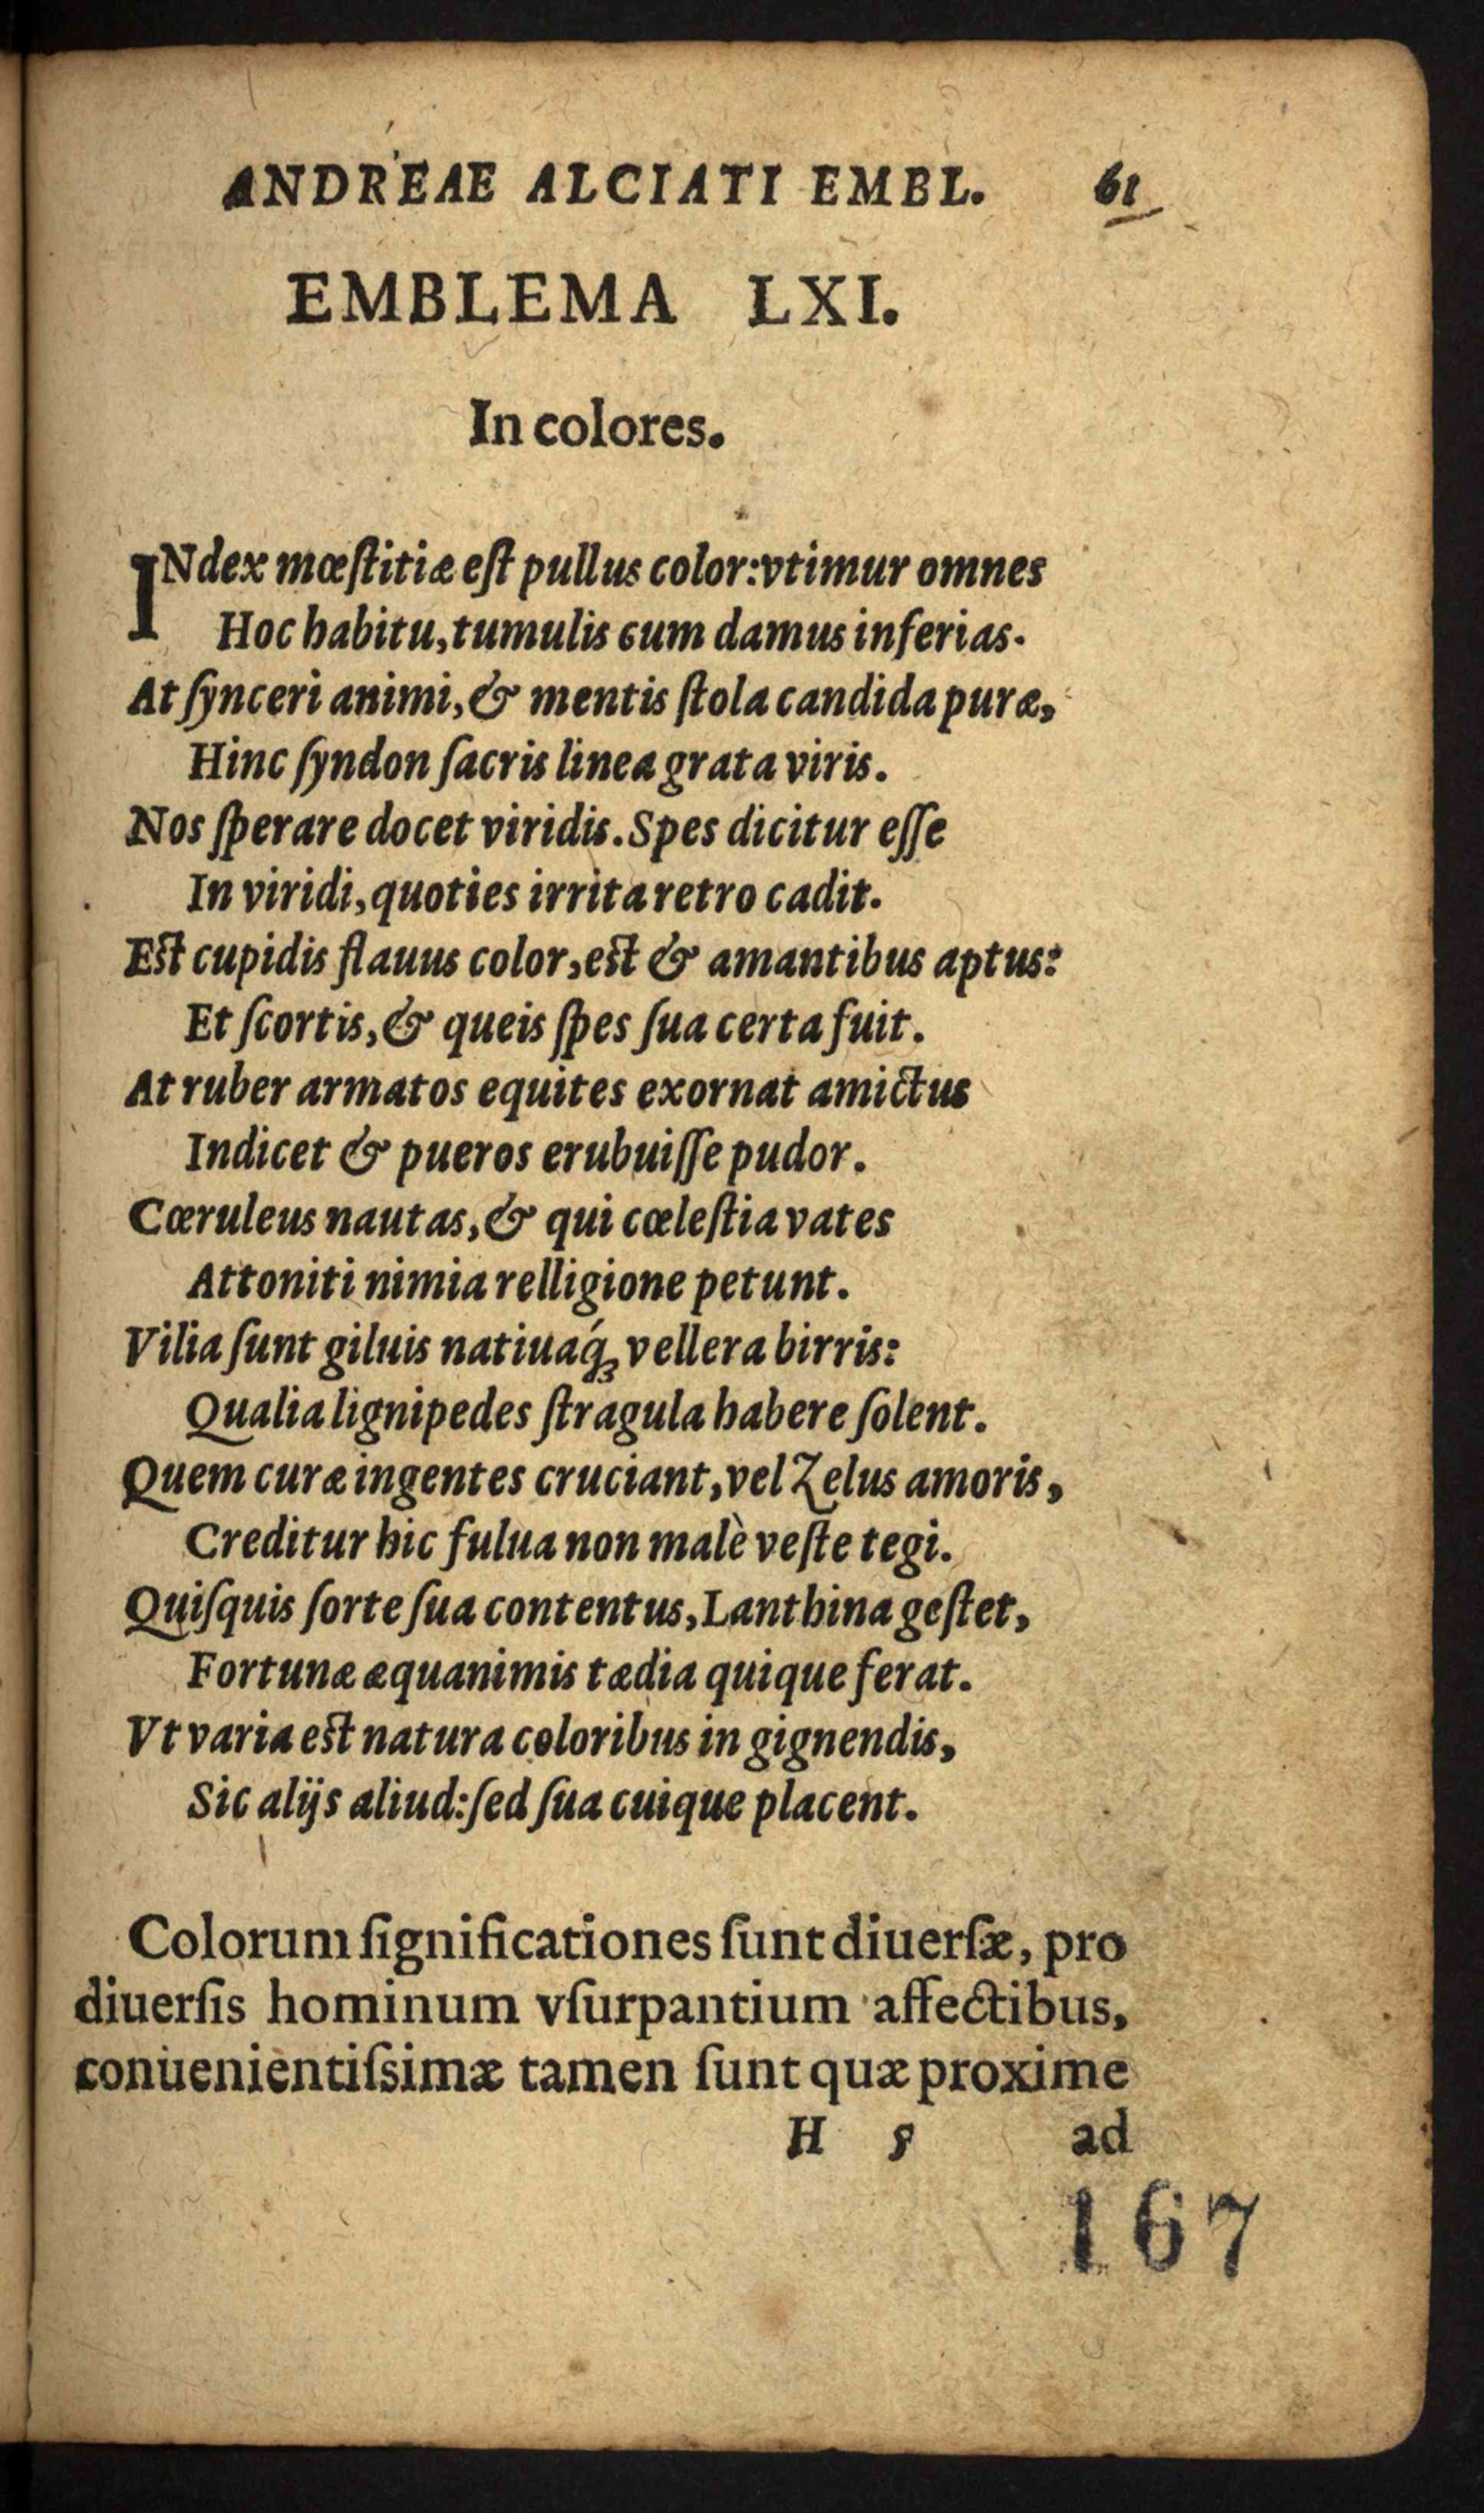 ANDREAE ALCIATI EMBL. 61
EMBLEMA LXI.
In colores.
INdex mœſtitiæ eſt pullus color:vtimur omnes
Hoc habitu,tumulis cum damus inferias.
At ſynceri animi,& mentis ſtola candida puræ,
Hinc ſyndon ſacris linea grata viris.
Nos ſperare docet viridis.Spes dicitur eſſe
In viridi,quoties irrita retro cadit.
Eſt cupidis flauus color,eſt & amantibus aptus:
Et ſcortis,& queis ſpes ſua certa fuit.
At ruber armatos equites exornat amictus
Indicet & pueros erubuiſſe pudor.
Cœruleus nautas,& qui cœleſtia vates
Attoniti nimia relligione petunt.
Vilia ſunt giluis natiuaq́ꝫ vellera birris:
Qualia lignipedes ſtragula habere ſolent.
Quem curæ ingentes cruciant,vel Zelus amoris,
Creditur hic fulua non malè veſte tegi.
Quiſquis ſorte ſua contentus,Lanthina geſtet,
Fortunæ æquanimis tædia quique ferat.
Vt varia eſt natura coloribus in gignendis,
Sic alijs aliud:ſed ſua cuique placent.
Colorum ſignificationes ſunt diuerſæ, pro
diuerſis hominum vſurpantium affectibus,
conuenientiſsimæ tamen ſunt quæ proxime
H 5 ad
167